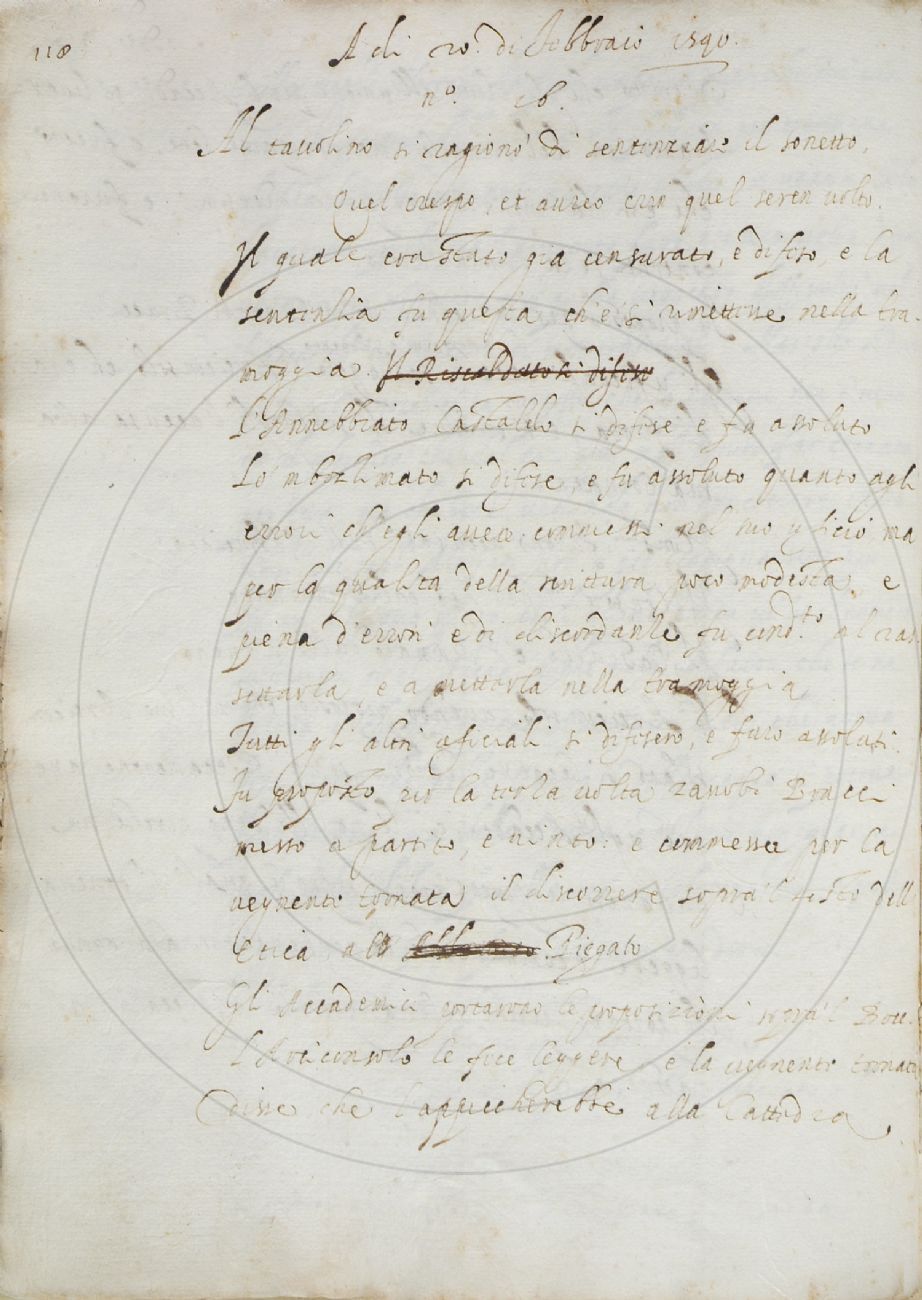 118
A di 20. di Febbraio 1590.
n.º 16.
Al tavolino si ragionò di sentenziare il sonetto,
Quel crespo, et aureo crin quel seren volto.
Il quale era stato già censurato, e difeso, e la
sentenzia fu questa ch'e' si rimettesse nella tra-
moggia. Il Riscaldato si difese
L'Annebbiato Castaldo si difese e fu assoluto
Lo 'mbozlimato si difese, e fu assoluto quanto agli
errori ch'egli avea commessi nel suo uficio ma
per la qualità della scrittura poco modesta e
piena d'errori e di discordanze fu cond.to al ras
settarla, e a mettarla nella tramoggia
Tutti gli altri uficiali si difesero, e furo assoluti.
Fu proposto per la terza volta Zanobi Bracci
messo a partito, e vinto: e commesse per la
vegnente tornata il discorrere sopra 'l testo dell
Etica allo Piegato
Gli Accademici portarono le proposizioni sopra 'l Bocc.
L'Arciconsolo le fece leggere, e la vegnente tornata
disse che l'appiccherebbe alla Cattedra.